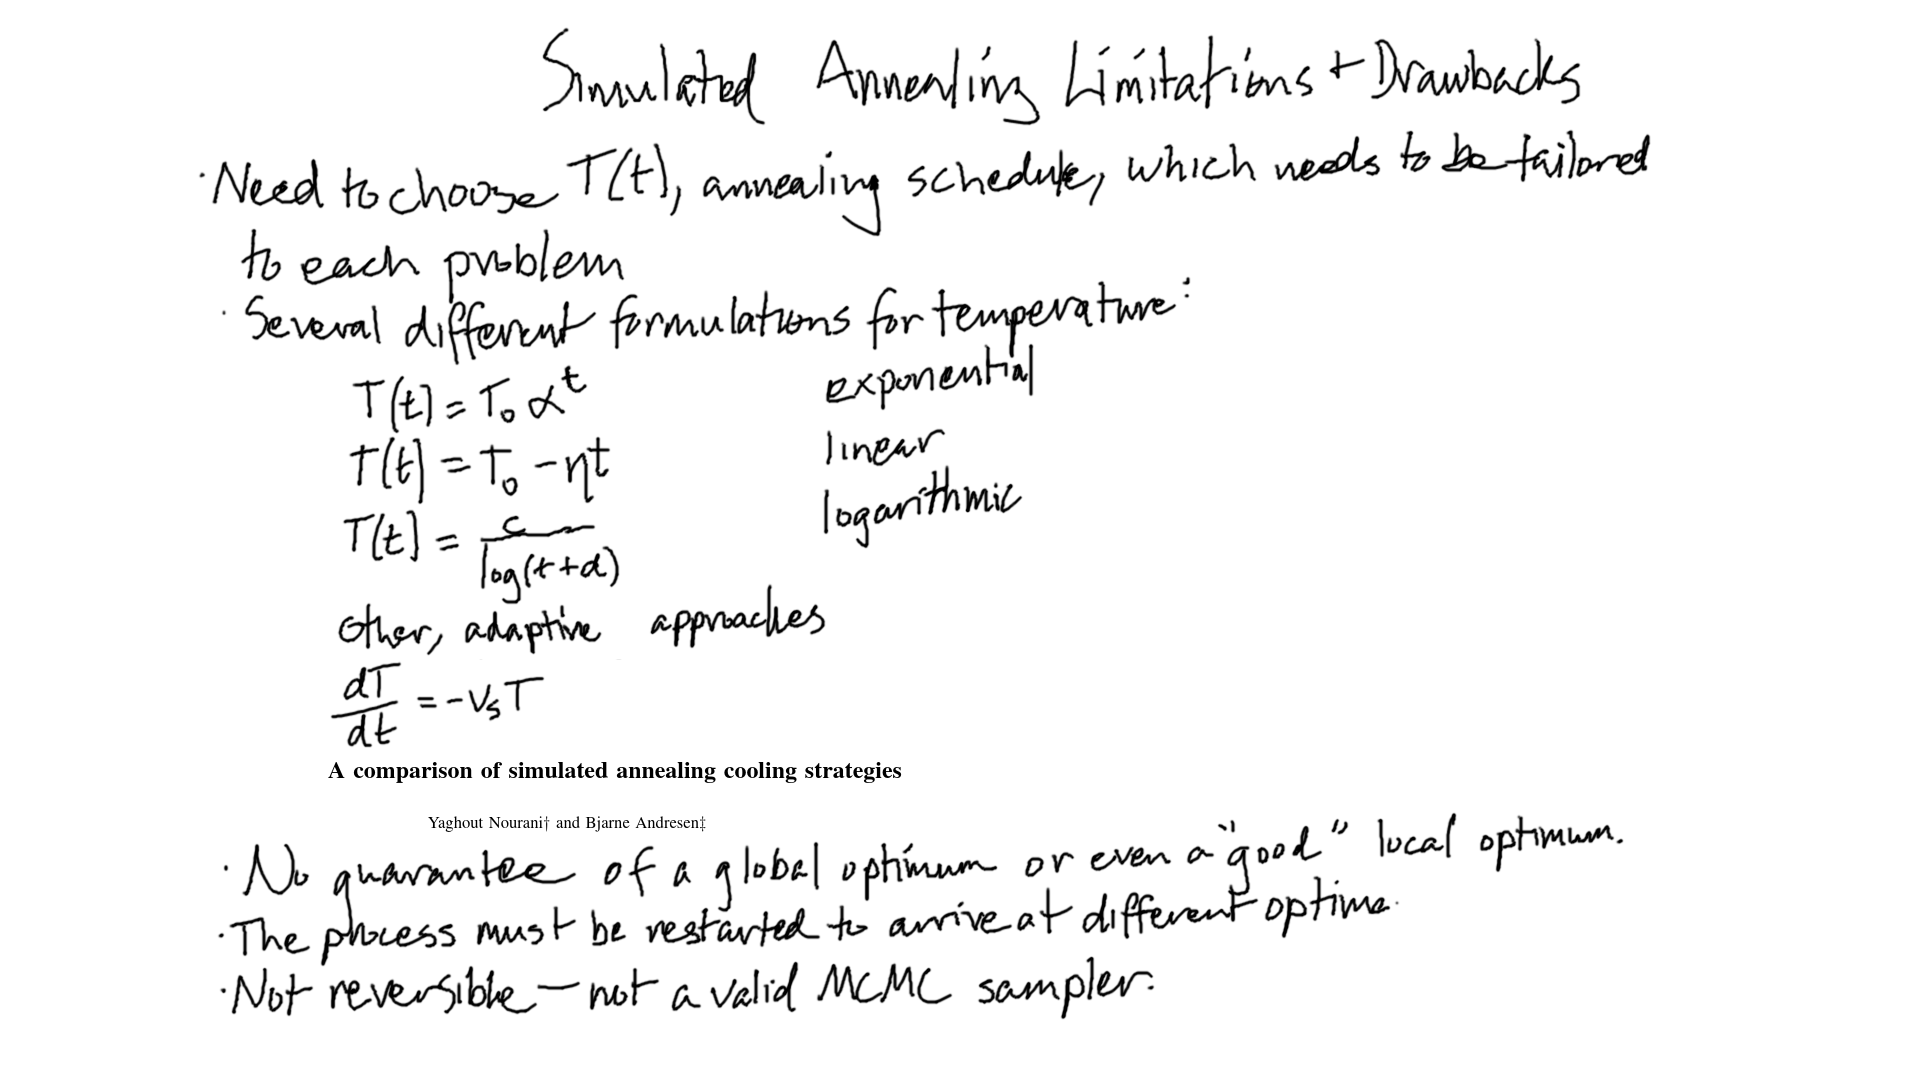 Simulated Annealing Limitations + Drawbacks
· Need to choose T(t), annealing schedule, which needs to be tailored
to each problem
· Several different formulations for temperature:
T(t) = T₀ α^t exponential
T(t) = T₀ - ηt linear
T(t) = c / log(t+d) logarithmic
other, adaptive approaches
dT/dt = -v_s T
A comparison of simulated annealing cooling strategies
Yaghout Nourani† and Bjarne Andresen‡
· No guarantee of a global optimum or even a "good" local optimum.
· The process must be restarted to arrive at different optima.
· Not reversible — not a valid MCMC sampler.